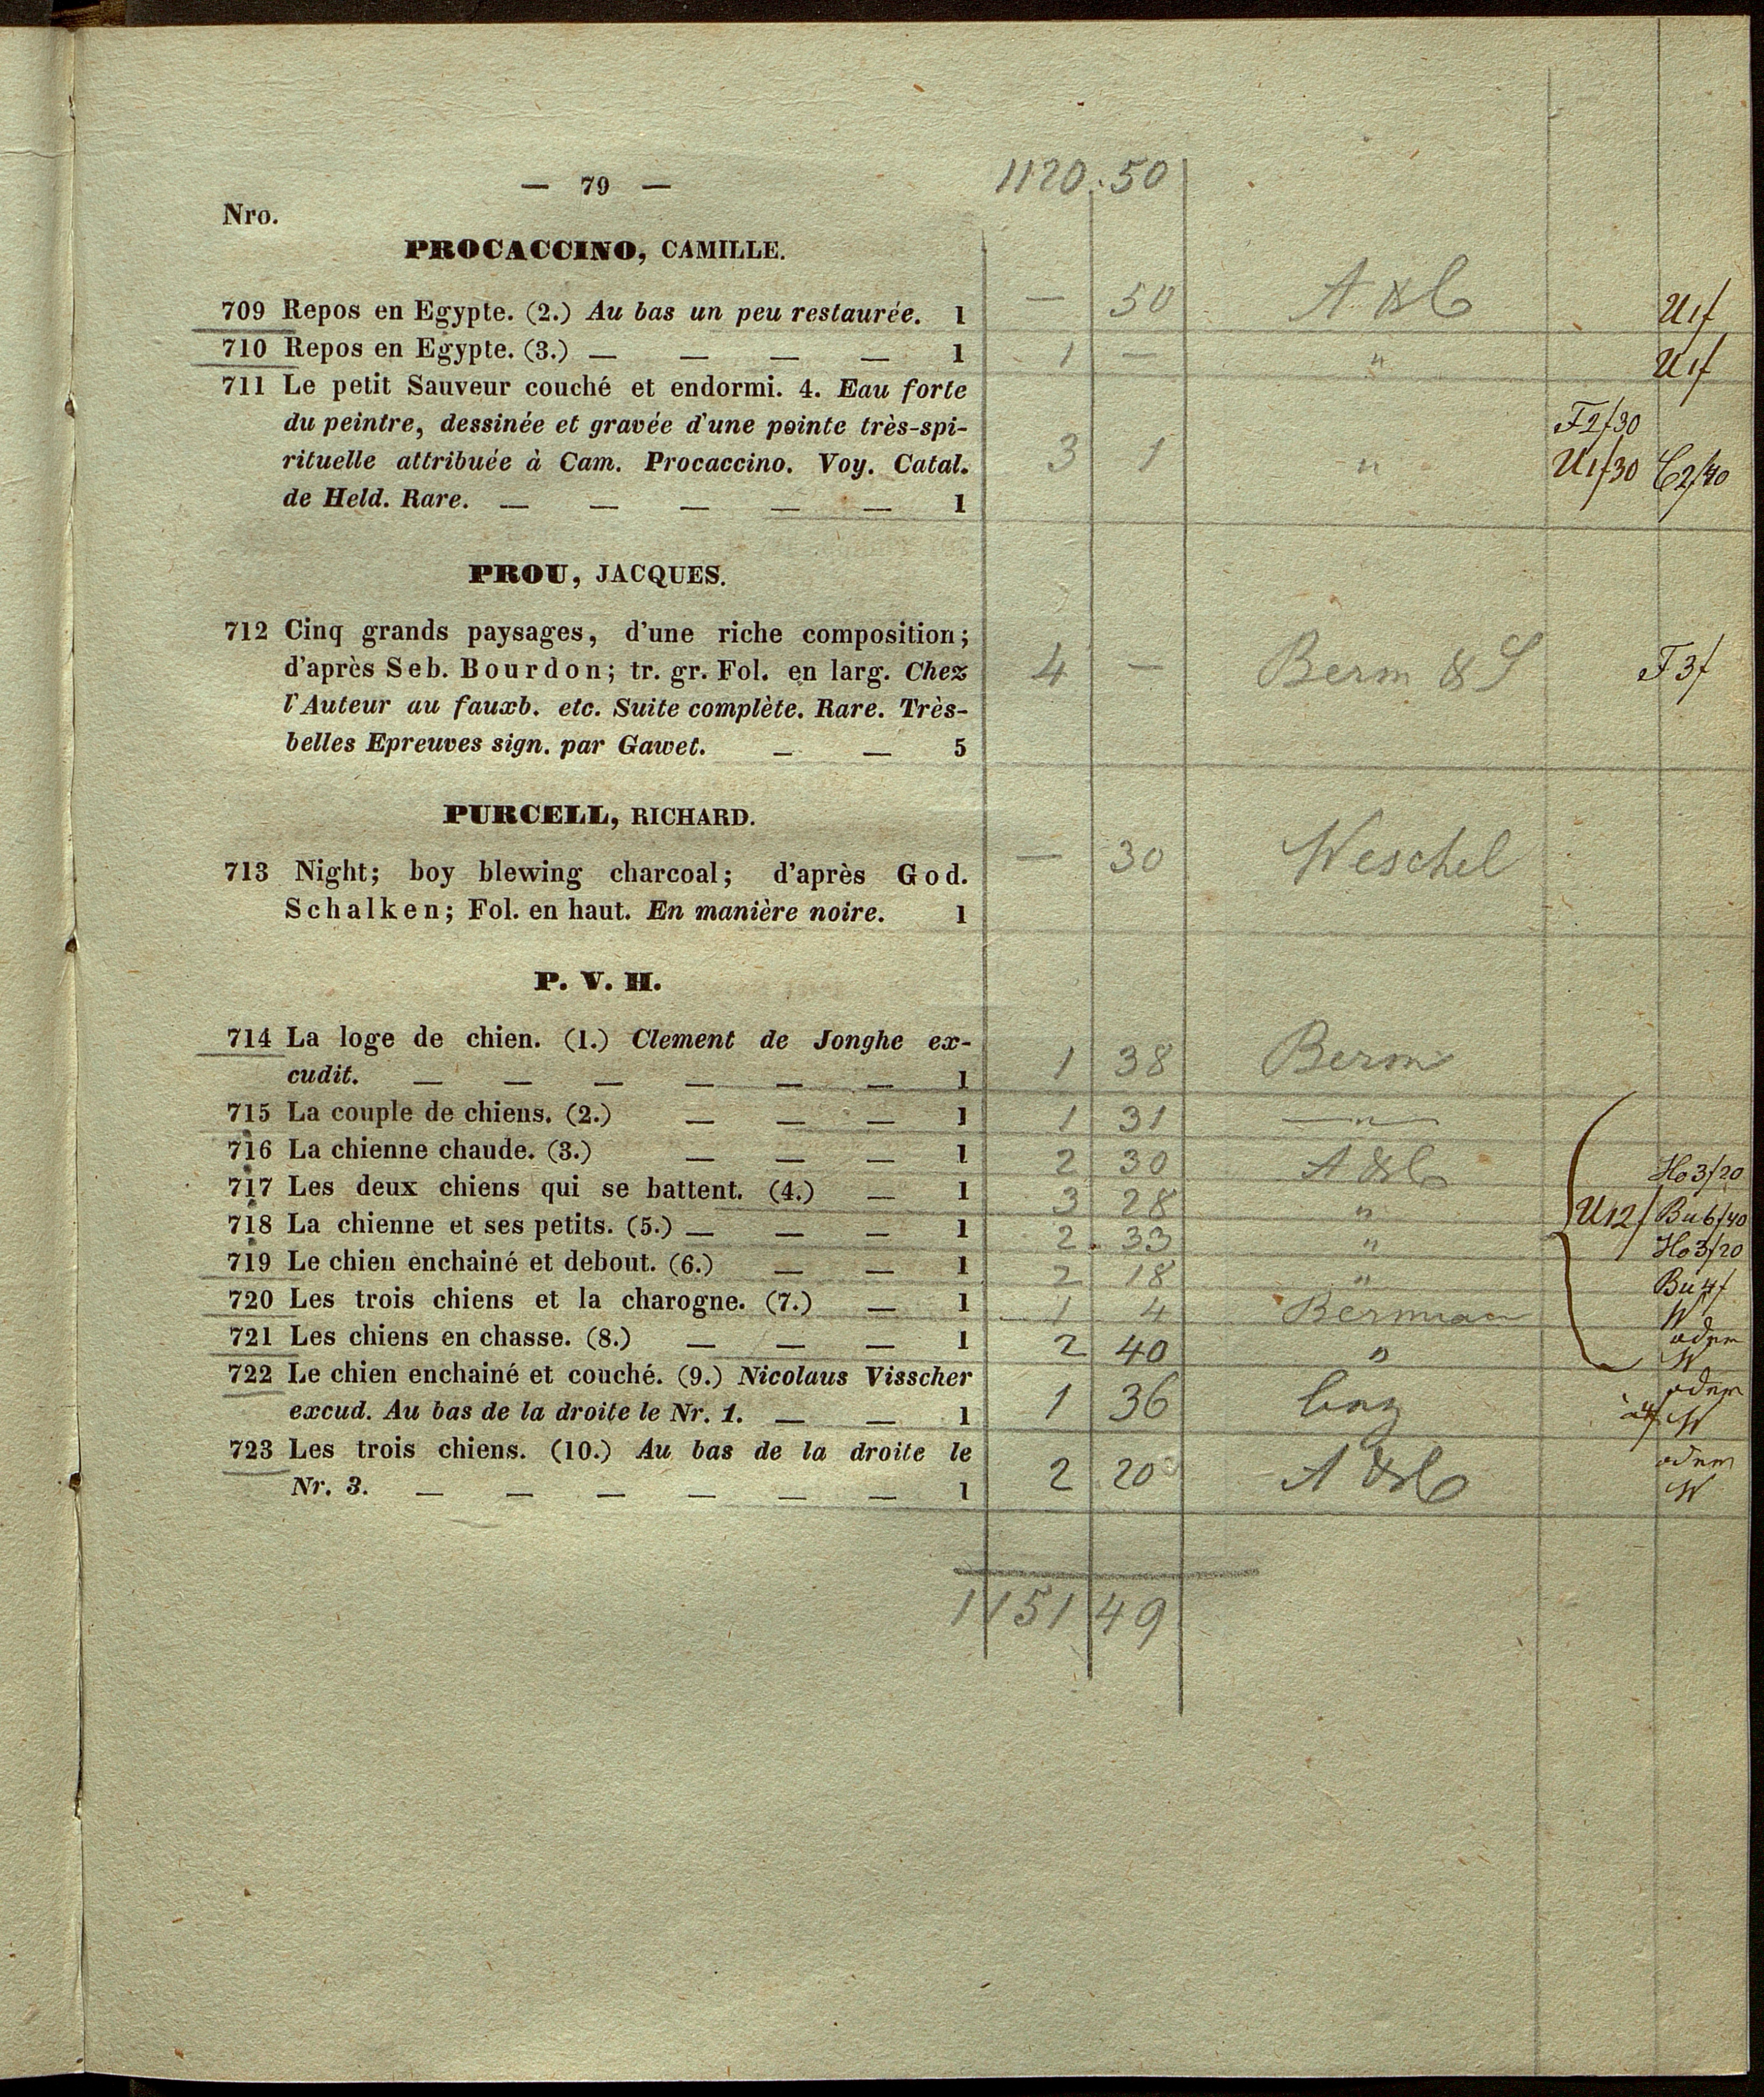 1120.50
— 79 —
Nro.
PROCACCINO, CAMILLE.
709 Repos en Egypte. (2.) Au bas un peu restaurée. 1 — 50 A & C U1f
710 Repos en Egypte. (3.) — — — — 1 1 — " U1f
711 Le petit Sauveur couché et endormi. 4. Eau forte
du peintre, dessinée et gravée d'une pointe très-spi- F2f30
rituelle attribuée à Cam. Procaccino. Voy. Catal. 3 1 " U1f30 C2f40
de Held. Rare. — — — — — 1
PROU, JACQUES.
712 Cinq grands paysages, d'une riche composition;
d'après Seb. Bourdon; tr. gr. Fol. en larg. Chez 4 — Berm & S F3f
l'Auteur au fauxb. etc. Suite complète. Rare. Très-
belles Epreuves sign. par Gawet. — — 5
PURCELL, RICHARD.
713 Night; boy blewing charcoal; d'après God. — 30 Weschel
Schalken; Fol. en haut. En manière noire. 1
P. V. H.
714 La loge de chien. (1.) Clement de Jonghe ex-
cudit. — — — — — — 1 1 38 Berm
715 La couple de chiens. (2.) — — — 1 1 31 —"—
716 La chienne chaude. (3.) — — — 1 2 30 A & C Ho3f20
717 Les deux chiens qui se battent. (4.) — 1 3 28 " U12f Bu6f40
718 La chienne et ses petits. (5.) — — — 1 2 33 " Ho3f20
719 Le chien enchainé et debout. (6.) — — 1 2 18 " Bu4f
720 Les trois chiens et la charogne. (7.) — 1 1 4 Berman W
721 Les chiens en chasse. (8.) — — — 1 2 40 " W
722 Le chien enchainé et couché. (9.) Nicolaus Visscher
excud. Au bas de la droite le Nr. 1. — — 1 1 36 W
723 Les trois chiens. (10.) Au bas de la droite le
Nr. 3. — — — — — — 1 2 20 A & C W
1151 49